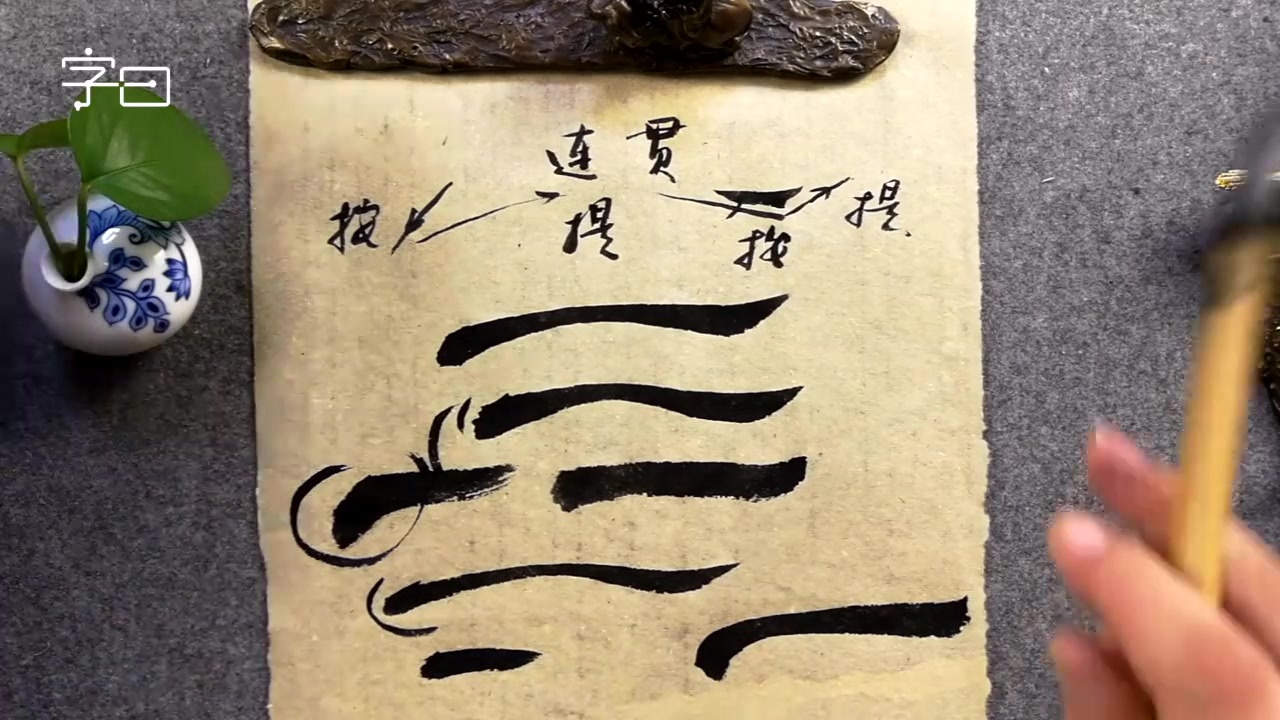 字曰
连贯
按 提 按 提